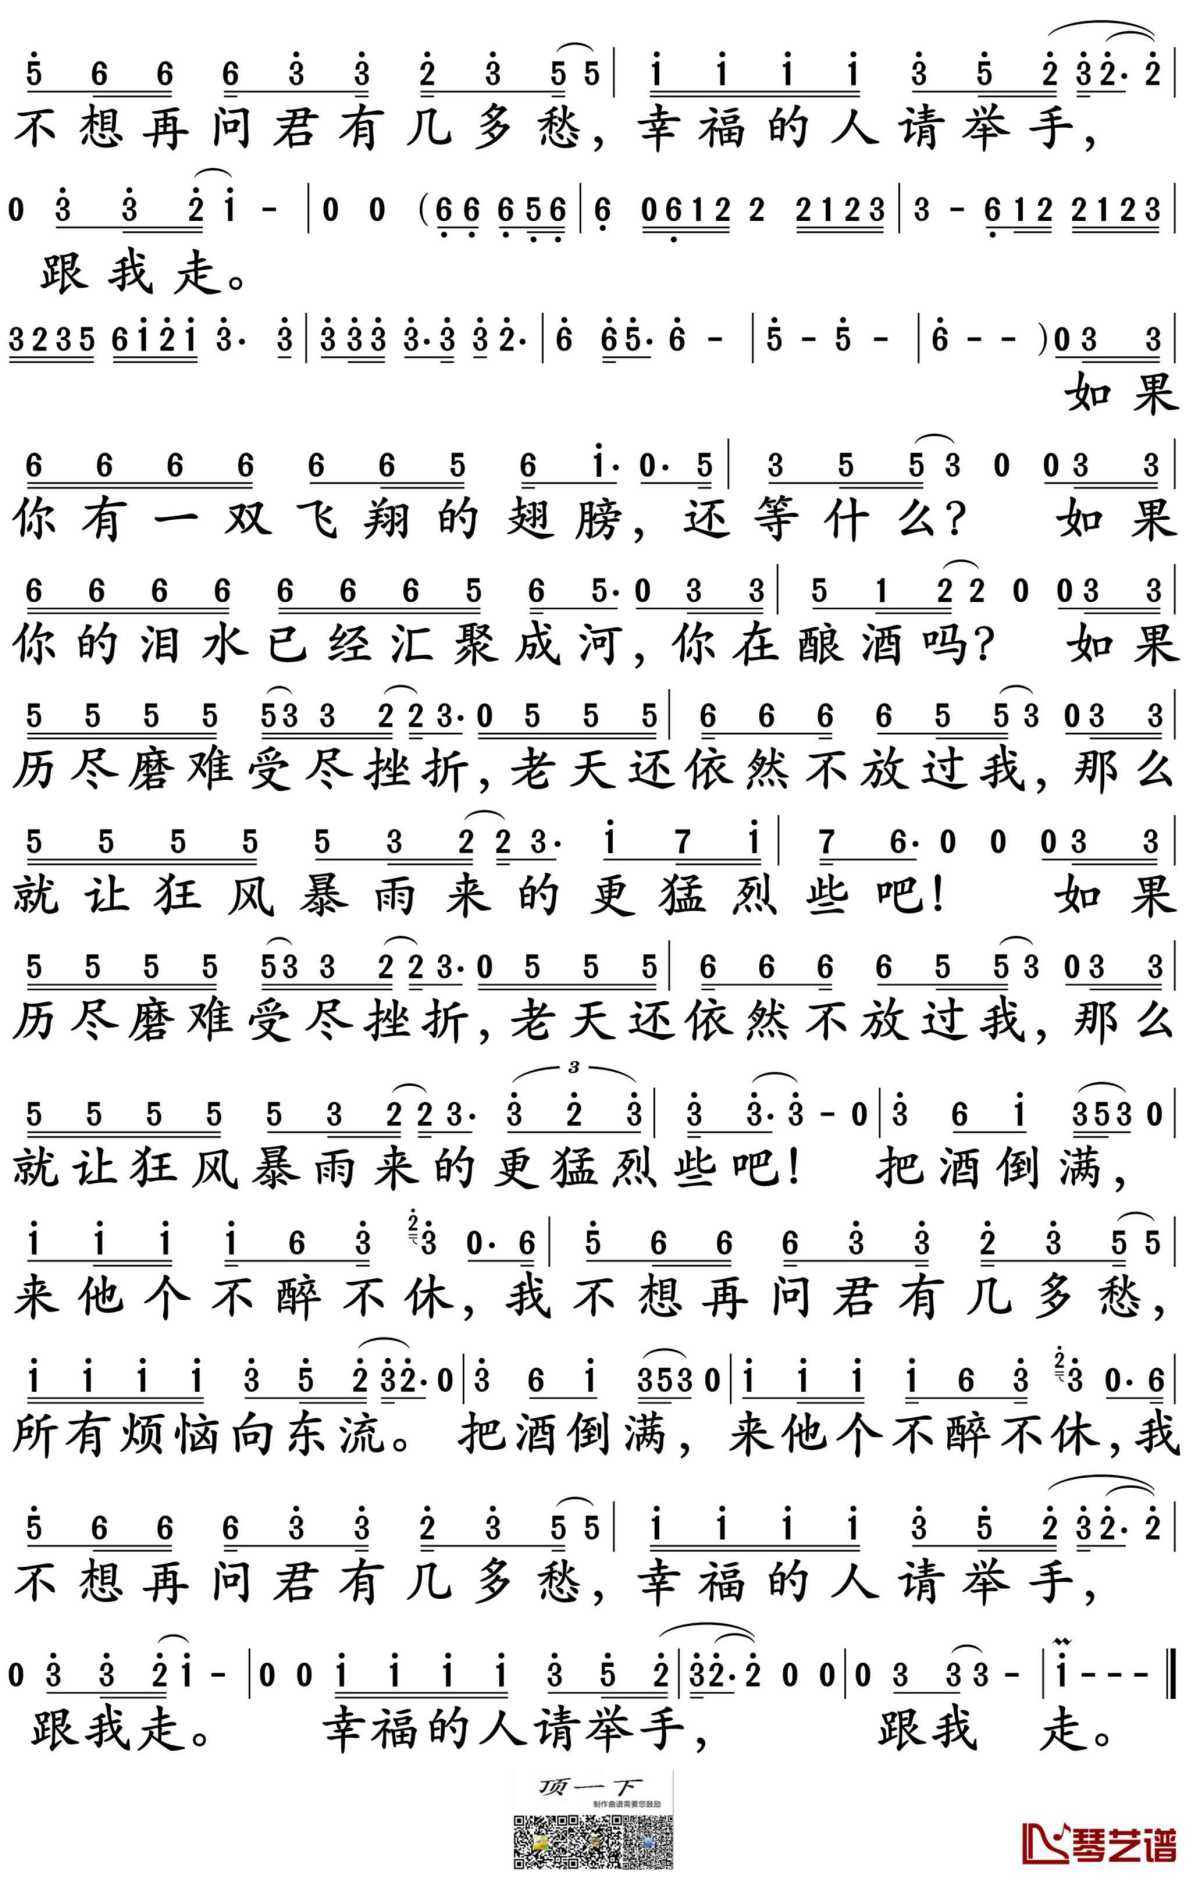 5 6 6 6 3 3 2 3 5 5 | 1 1 1 1 3 5 2 3 2· 2 |
不想再问君有几多愁，幸福的人请举手，
0 3 3 2 1 - | 0 0 (6 6 6 5 6 | 6 0 6 1 2 2 2 1 2 3 | 3 - 6 1 2 2 1 2 3 |
跟我走。
3 2 3 5 6 1 2 1 3· 3 | 3 3 3 3· 3 3 2· | 6 6 5· 6 - | 5 - 5 - | 6 - - ) 0 3 3 |
如果
6 6 6 6 6 6 5 6 1· 0· 5 | 3 5 5 3 0 0 3 3 |
你有一双飞翔的翅膀，还等什么？ 如果
6 6 6 6 6 6 6 5 6 5· 0 3 3 | 5 1 2 2 0 0 3 3 |
你的泪水已经汇聚成河，你在酿酒吗？ 如果
5 5 5 5 5 3 3 2 2 3· 0 5 5 5 | 6 6 6 6 5 5 3 0 3 3 |
历尽磨难受尽挫折，老天还依然不放过我，那么
5 5 5 5 5 3 2 2 3· 1 7 1 | 7 6· 0 0 0 3 3 |
就让狂风暴雨来的更猛烈些吧！ 如果
5 5 5 5 5 3 3 2 2 3· 0 5 5 5 | 6 6 6 6 5 5 3 0 3 3 |
历尽磨难受尽挫折，老天还依然不放过我，那么
3
5 5 5 5 5 3 2 2 3· 3 2 3 | 3 3· 3 - 0 | 3 6 1 3 5 3 0 |
就让狂风暴雨来的更猛烈些吧！ 把酒倒满，
1 1 1 1 6 3 2 3 0· 6 | 5 6 6 6 3 3 2 3 5 5 |
来他个不醉不休，我不想再问君有几多愁，
1 1 1 1 3 5 2 3 2· 0 | 3 6 1 3 5 3 0 | 1 1 1 1 6 3 2 3 0· 6 |
所有烦恼向东流。把酒倒满，来他个不醉不休，我
5 6 6 6 3 3 2 3 5 5 | 1 1 1 1 3 5 2 3 2· 2 |
不想再问君有几多愁，幸福的人请举手，
0 3 3 2 1 - | 0 0 1 1 1 1 3 5 2 | 3 2· 2 0 0 | 0 3 3 3 - | 1 - - - ‖
跟我走。 幸福的人请举手， 跟我 走。
顶一下
制作曲谱需要您鼓励
琴艺谱